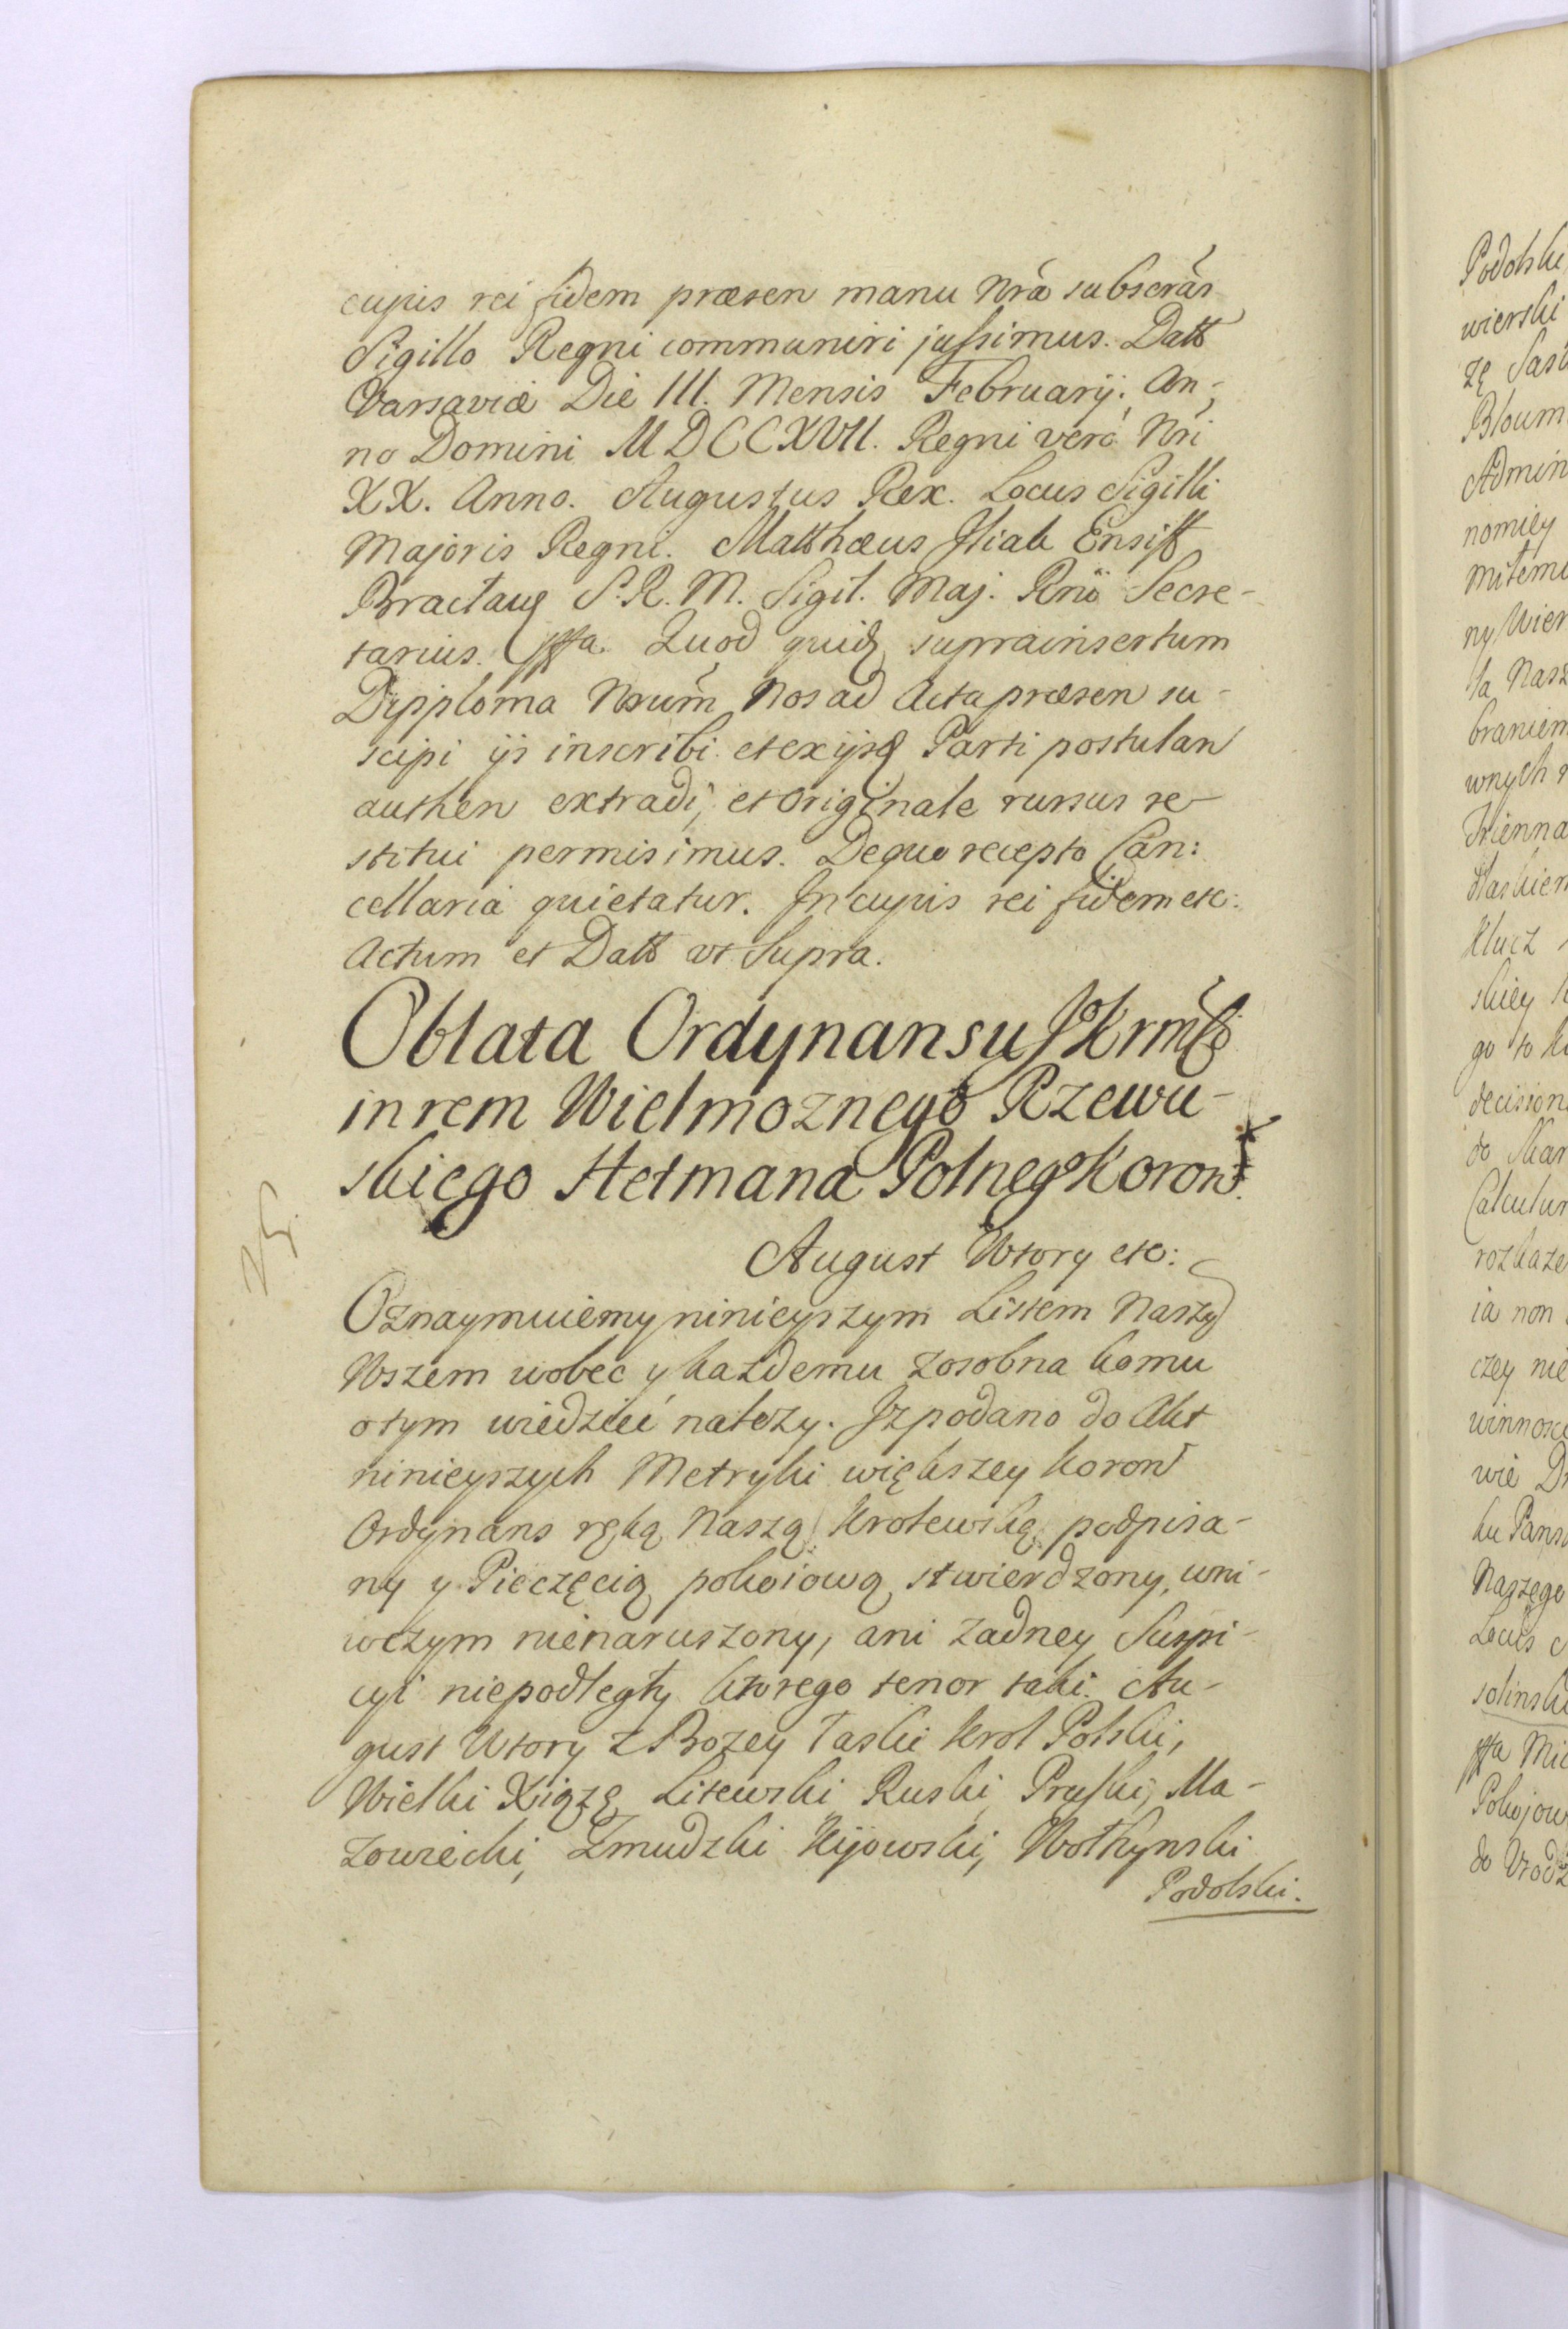 cujus rei fidem præsen manu Nrã subscrãs
Sigillo Regni communiri jussimus. Datt
Varsaviæ Die III. Mensis February. An-
no Domini MDCCXVII. Regni veró Nri
XX. Anno. Augustus Rex. Locus Sigilli
Majoris Regni. Matthæus Ensift
S.R.M. Sigil. Maj. Rnii Secre-
tarius. Quod quidz suprainsertum
Dypploma Nrum Nos ad Acta præsen su-
scipi ijs inscribi et exijsq Parti postulan
authen extradi, et Originale rursus re-
stitui permisimus. De quo recepto Can:
cellaria quietatur. In cujus rei fidem etc:
Actum et Datt ut Supra.
Oblata Ordynansu JKrmści
in rem Wielmoznego Rzewu-
skiego Hetmana Polnego Koron.
August Wtory etc:
Oznaymuiemy ninieyszym Listem Naszy
Wszem wobec y kazdemu zosobna komu
otym wiedzieć nalezy. Iz podano do Akt
ninieyszych Metryki większey koron
Ordynans ręką Naszą Krolewską podpisa-
ny y Pieczęcią pokoiową stwierdzony, wni-
wczym nienaruszony, ani zadney Suspi-
cyi niepodległy ktorego tenor taki. Au-
gust Wtory z Bozey łaski Krol Polski,
Wielki Xiązę Litewski Ruski, Pruski, Ma-
zowiecki, Zmudzki Kijowski, Wołhynski
Podolski.
Podolski
wierski
zę Sas
Bloum
Admin
nomiey
ny Wier
la Nasz
braniem
wnych
klucz
skiey
go to
decision
do Skar
Calculu
rozkaze
ia non
czey nie
winnosc
wie
ku Pans
Naszego
Locus
solinski
Pokojow
do Urodz